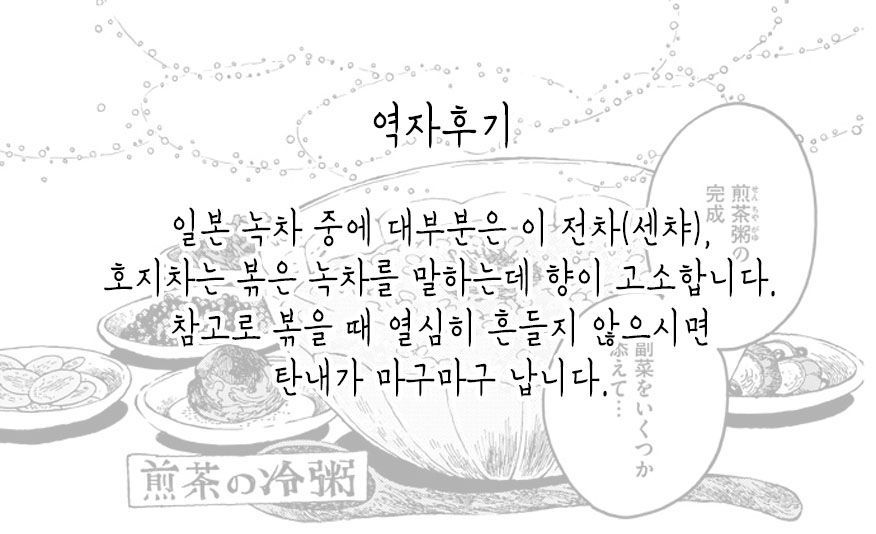 역자후기
일본 녹차 중에 대부분은 이 전차(센챠),
호지차는 볶은 녹차를 말하는데 향이 고소합니다.
참고로 볶을 때 열심히 흔들지 않으시면
탄내가 마구마구 납니다.
煎茶粥の
せんちゃがゆ
完成
副菜をいくつか
添えて…
煎茶の冷粥